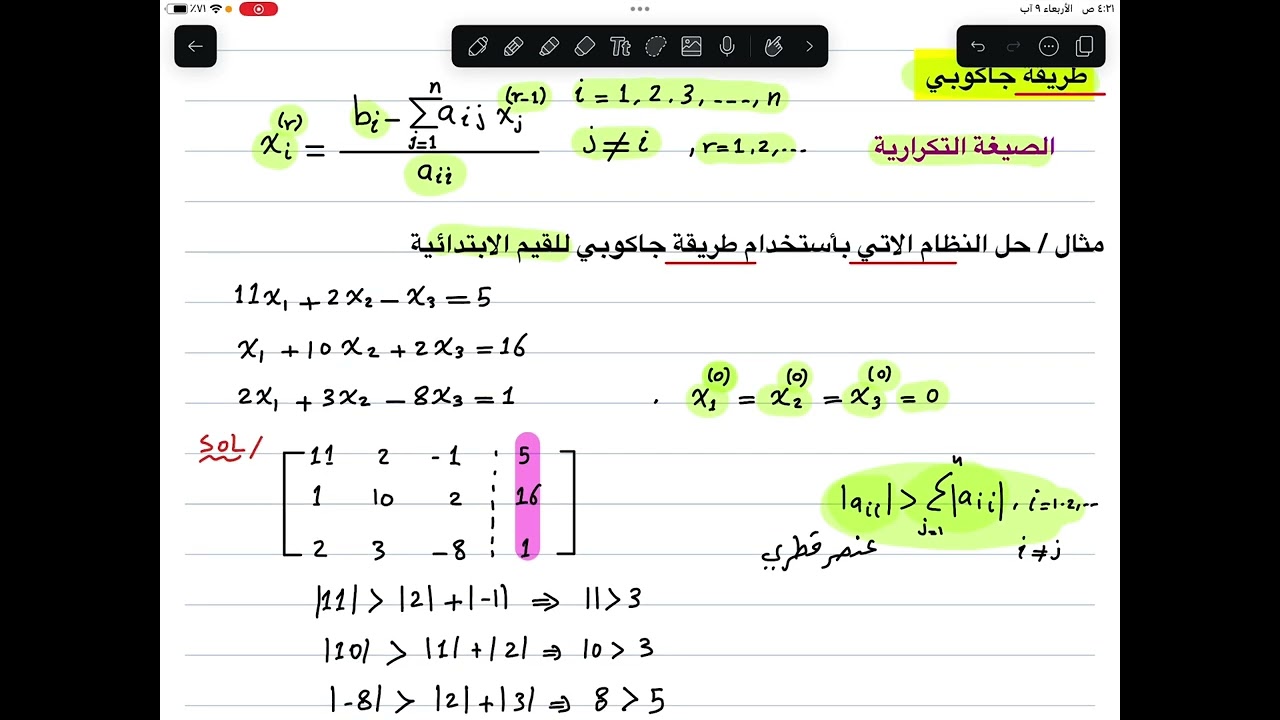 ٪٧١ ٤:٢١ ص الأربعاء ٩ آب
Tt
طريقة جاكوبي
xᵢ⁽ʳ⁾ = (bᵢ − Σⱼ₌₁ⁿ aᵢⱼ xⱼ⁽ʳ⁻¹⁾) / aᵢᵢ i = 1, 2, 3, ...., n
j ≠ i , r = 1, 2, ...
الصيغة التكرارية
مثال / حل النظام الاتي بأستخدام طريقة جاكوبي للقيم الابتدائية
11x₁ + 2x₂ − x₃ = 5
x₁ + 10x₂ + 2x₃ = 16
2x₁ + 3x₂ − 8x₃ = 1 . x₁⁽⁰⁾ = x₂⁽⁰⁾ = x₃⁽⁰⁾ = 0
SOL/
11 2 -1 5
1 10 2 16
2 3 -8 1
|aᵢᵢ| > Σⱼ₌₁ⁿ |aᵢᵢ| , i=1,2,...
عنصر قطري i ≠ j
|11| > |2| + |-1| ⇒ 11 > 3
|10| > |1| + |2| ⇒ 10 > 3
|-8| > |2| + |3| ⇒ 8 > 5